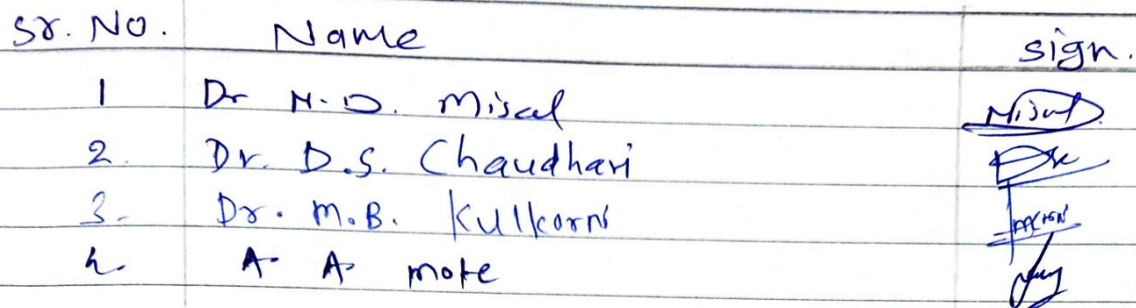 Sr. No. Name sign.
1 Dr N.D. Misal Misal
2. Dr. D.S. Chaudhari
3- Dr. M.B. Kulkarni
4. A. A. mote